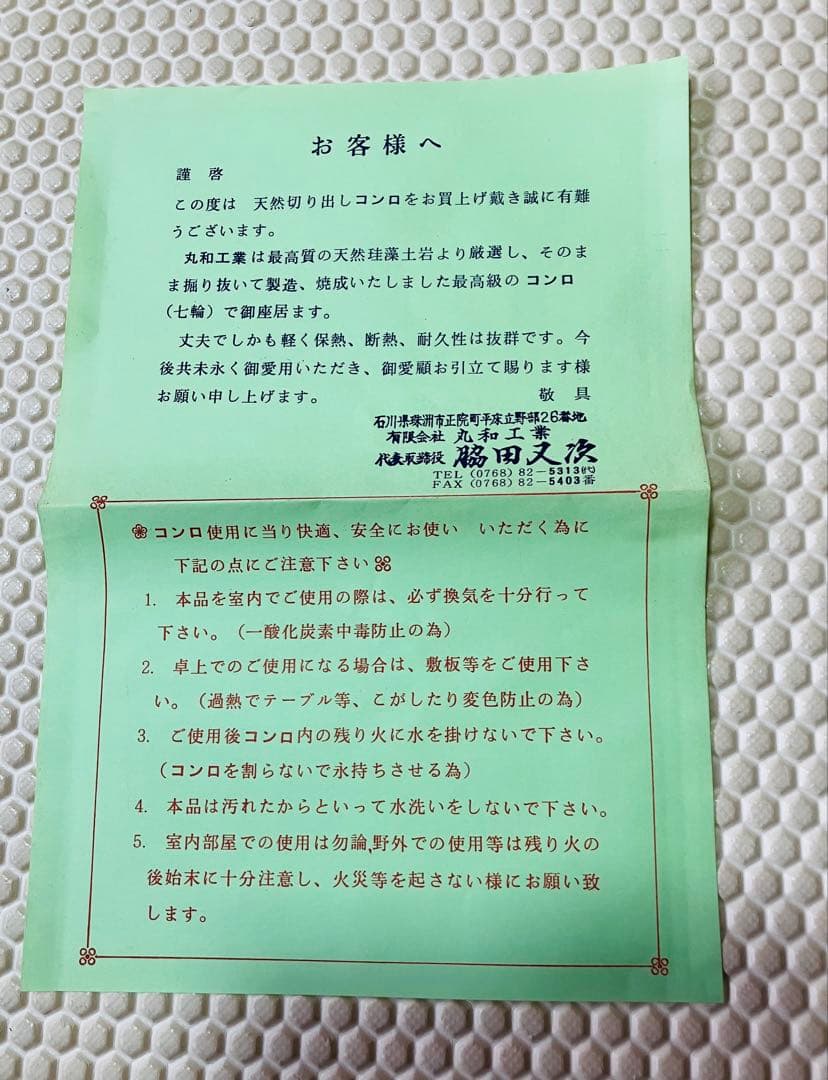 お客様へ
謹啓
この度は 天然切り出しコンロをお買上げ戴き誠に有難
うございます。
丸和工業は最高質の天然珪藻土岩より厳選し、そのま
ま掘り抜いて製造、焼成いたしました最高級の コンロ
(七輪)で御座居ます。
丈夫でしかも軽く保熱、断熱、耐久性は抜群です。今
後共未永く御愛用いただき、御愛顧お引立て賜ります様
お願い申し上げます。 敬具
石川県珠洲市正院町平床立野部26番地
有限会社 丸和工業
代表取締役 脇田又次
TEL (0768) 82-5313(代)
FAX (0768) 82-5403番
コンロ使用に当り快適、安全にお使い いただく為に
下記の点にご注意下さい
1. 本品を室内でご使用の際は、必ず換気を十分行って
下さい。(一酸化炭素中毒防止の為)
2. 卓上でのご使用になる場合は、敷板等をご使用下さ
い。(過熱でテーブル等、こがしたり変色防止の為)
3. ご使用後コンロ内の残り火に水を掛けないで下さい。
(コンロを割らないで永持ちさせる為)
4. 本品は汚れたからといって水洗いをしないで下さい。
5. 室内部屋での使用は勿論,野外での使用等は残り火の
後始末に十分注意し、火災等を起さない様にお願い致
します。